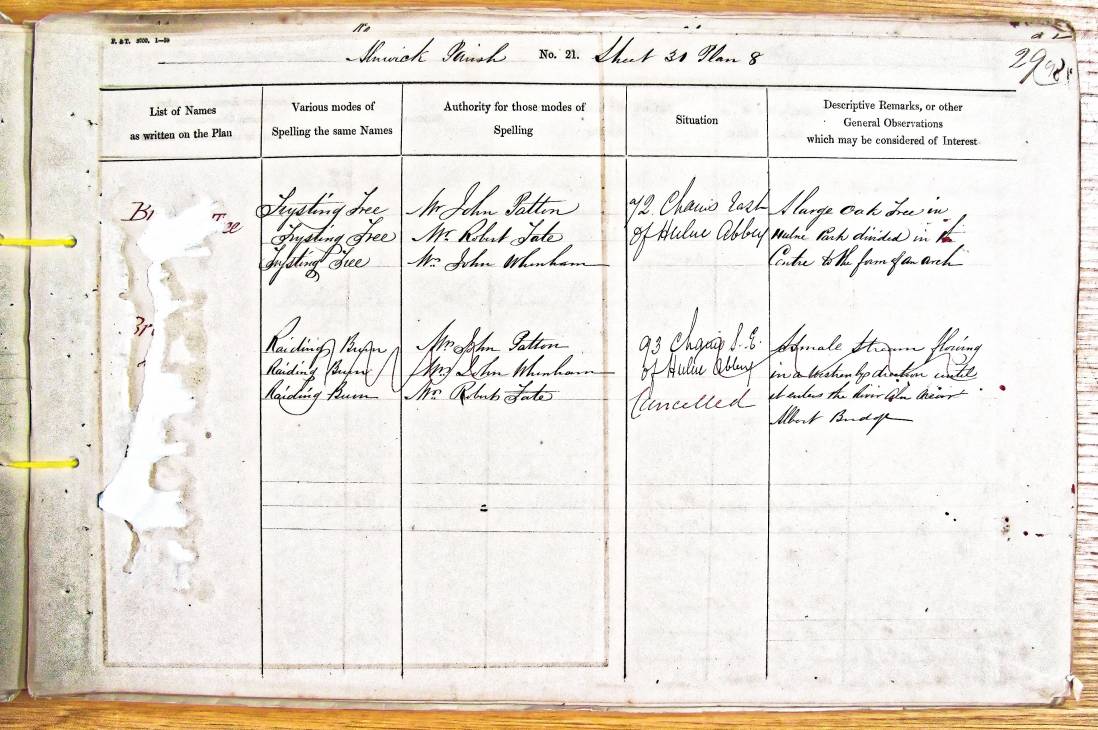 Alnwick Parish No. 21. Sheet 30 Plan 8
29
List of Names
as written on the Plan
Various modes of
Spelling the same Names
Authority for those modes of
Spelling
Situation
Descriptive Remarks, or other
General Observations
which may be considered of Interest
Trysting Tree Mr John Patton 72. Chains East A large Oak Tree in
Trysting Tree Mr. Robert Tate of Hulne Abbey Hulne Park divided in
Trysting Tree Mr. John Whinham Centre to the form of an arch
Raiding Burn Mr. John Patton 93 Chains S. E. A Small Stream flowing
Raiding Burn Mr. John Whinham of Hulne Abbey in a direction until
Raiding Burn Mr. Robert Tate Cancelled it enters the River Aln near
Albert Bridge